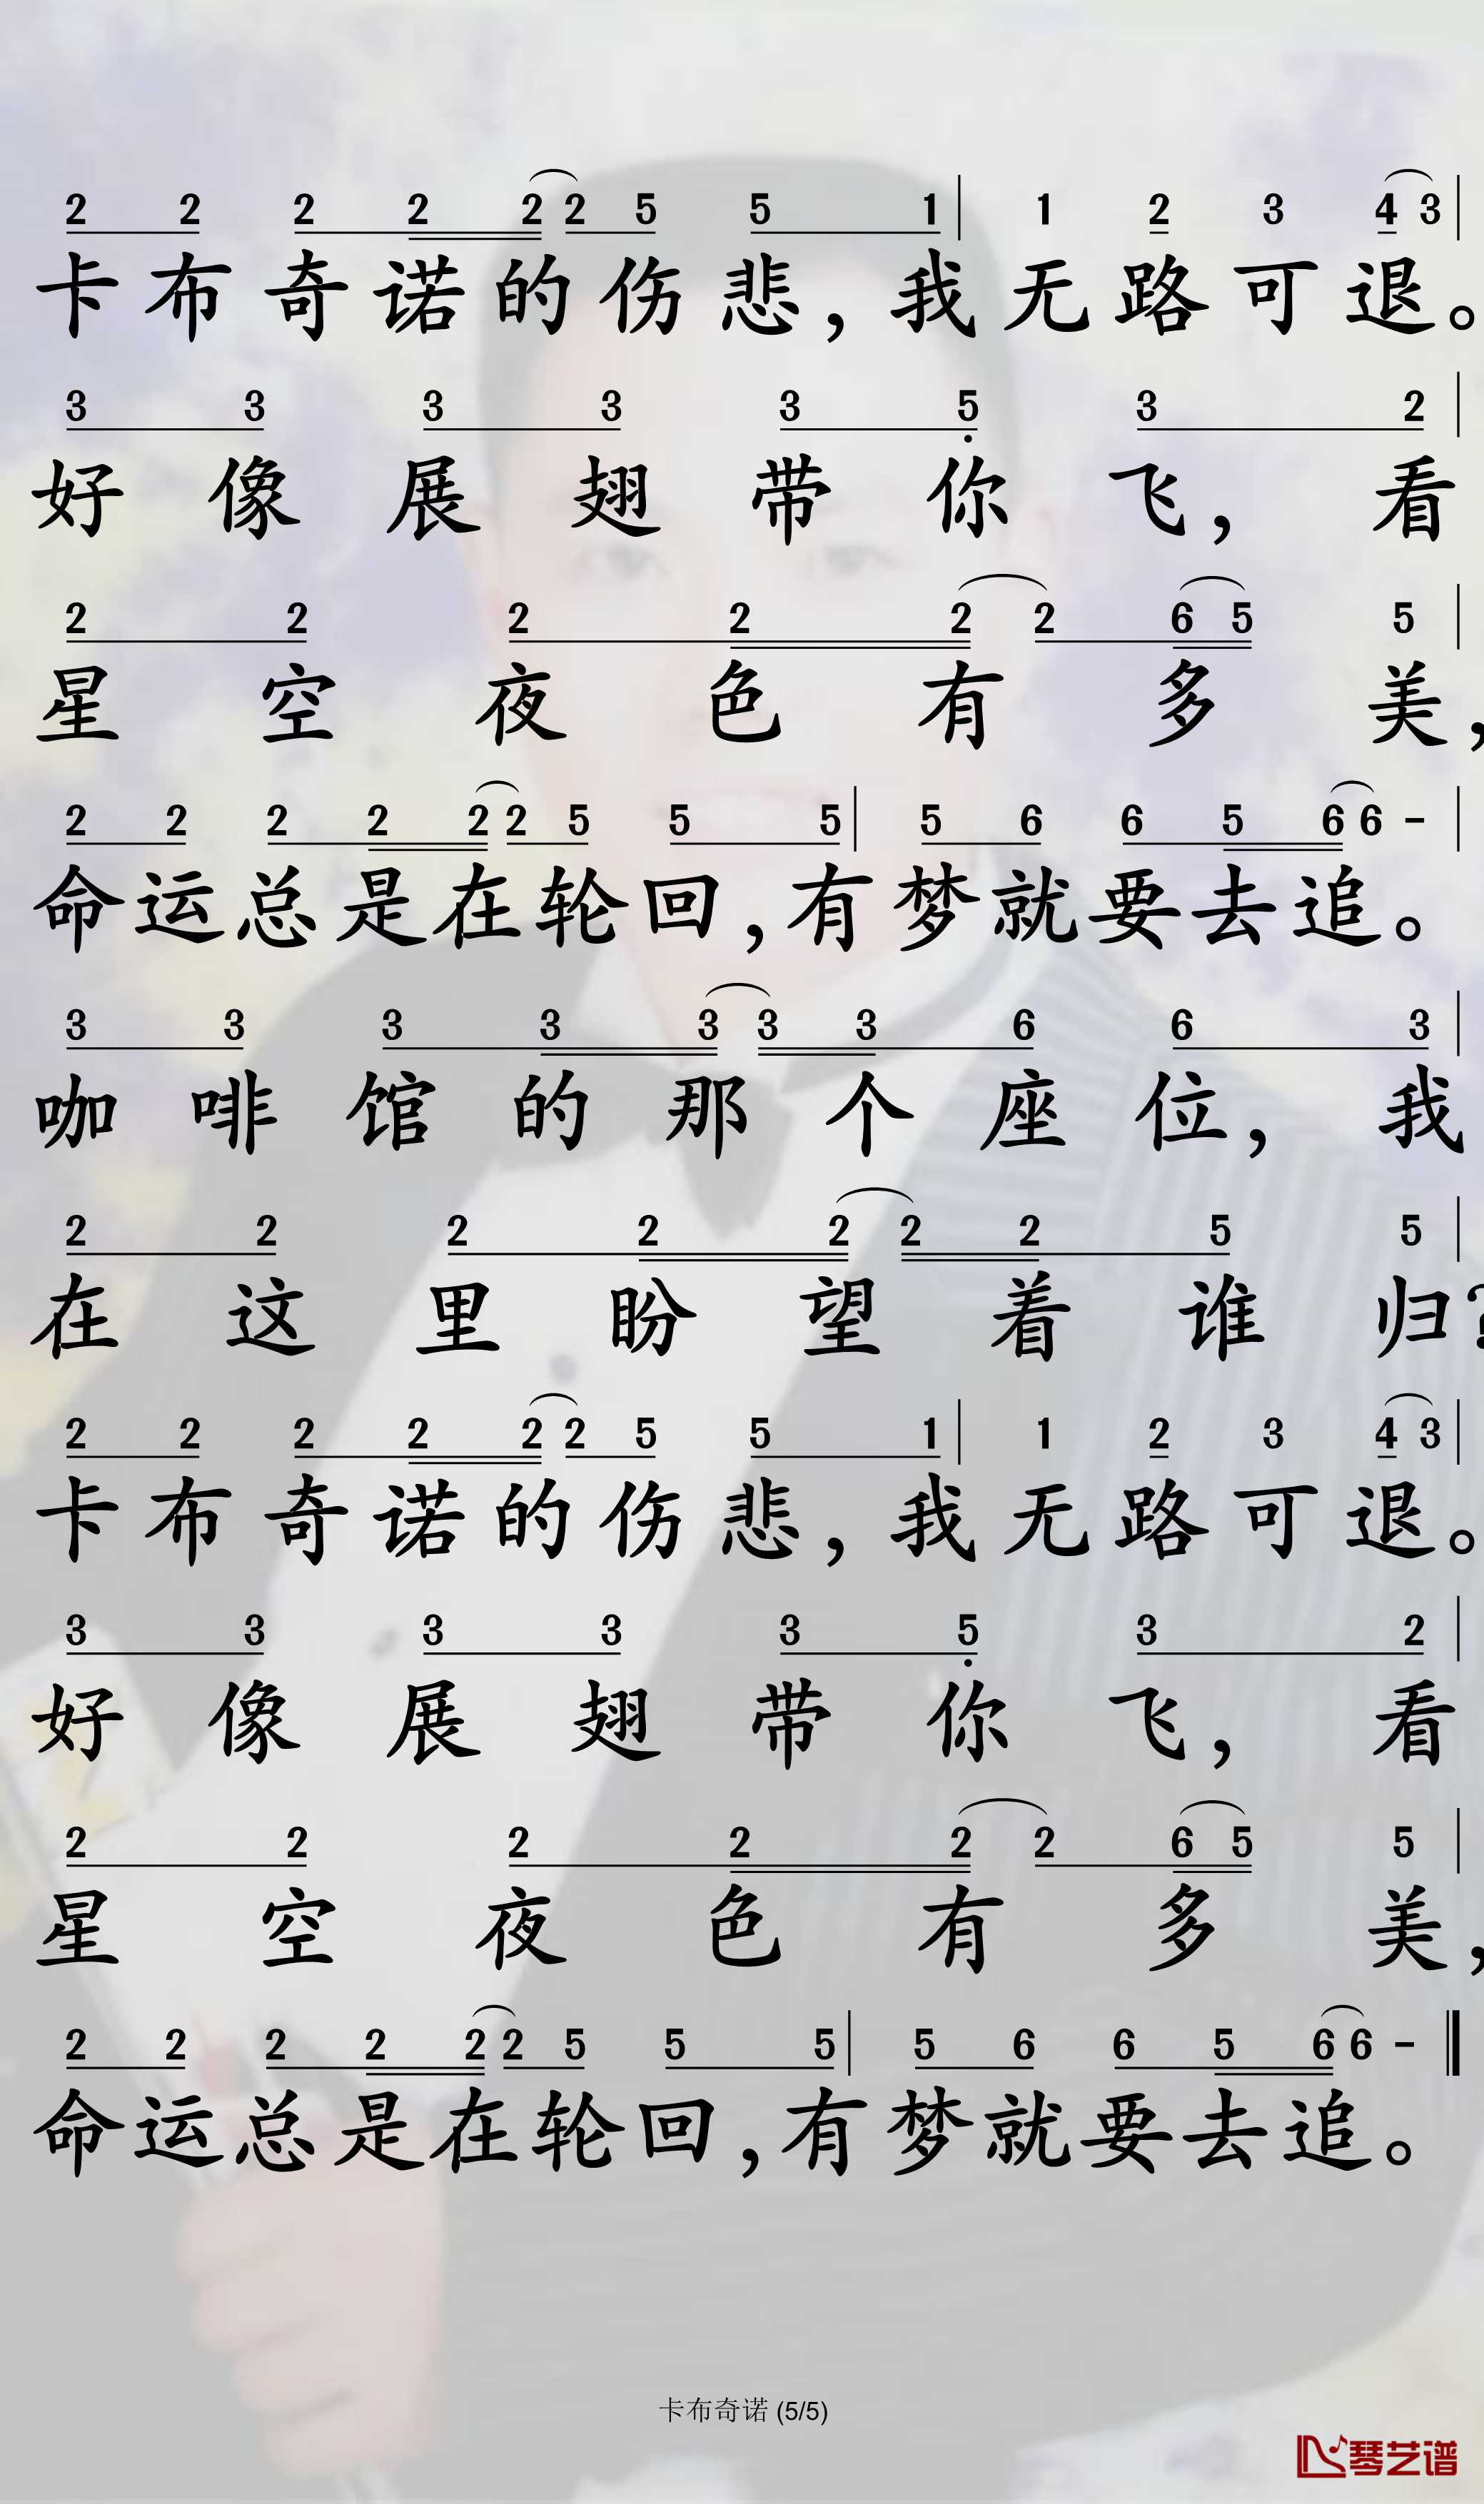 2 2 2 2 2 2 5 5 1 | 1 2 3 4 3 |
卡布奇诺的伤悲，我无路可退。
3 3 3 3 3 5 3 2 |
好像展翅带你飞，看
2 2 2 2 2 2 6 5 5 |
星空夜色有多美，
2 2 2 2 2 2 5 5 5 | 5 6 6 5 6 6 - |
命运总是在轮回，有梦就要去追。
3 3 3 3 3 3 3 6 6 3 |
咖啡馆的那个座位，我
2 2 2 2 2 2 2 5 5 |
在这里盼望着谁归？
2 2 2 2 2 2 5 5 1 | 1 2 3 4 3 |
卡布奇诺的伤悲，我无路可退。
3 3 3 3 3 5 3 2 |
好像展翅带你飞，看
2 2 2 2 2 2 6 5 5 |
星空夜色有多美，
2 2 2 2 2 2 5 5 5 | 5 6 6 5 6 6 - ‖
命运总是在轮回，有梦就要去追。
卡布奇诺 (5/5)
琴艺谱